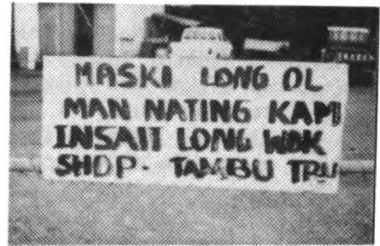 MASKI LONG OL
MAN NATING KAM
INSAIT LONG WOK
SHOP. TAMBU TRU